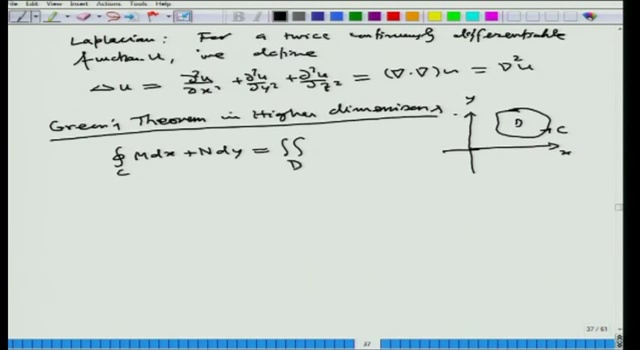 File View Insert Actions Tools Help
Laplacian: For a twice continuously differentiable
function u, we define
Δu = ∂²u/∂x² + ∂²u/∂y² + ∂²u/∂z² = (∇·∇)u = ∇²u
Green's Theorem in Higher dimensions.
∮_C Mdx + Ndy = ∬_D
y
D
C
x
37 / 61
37